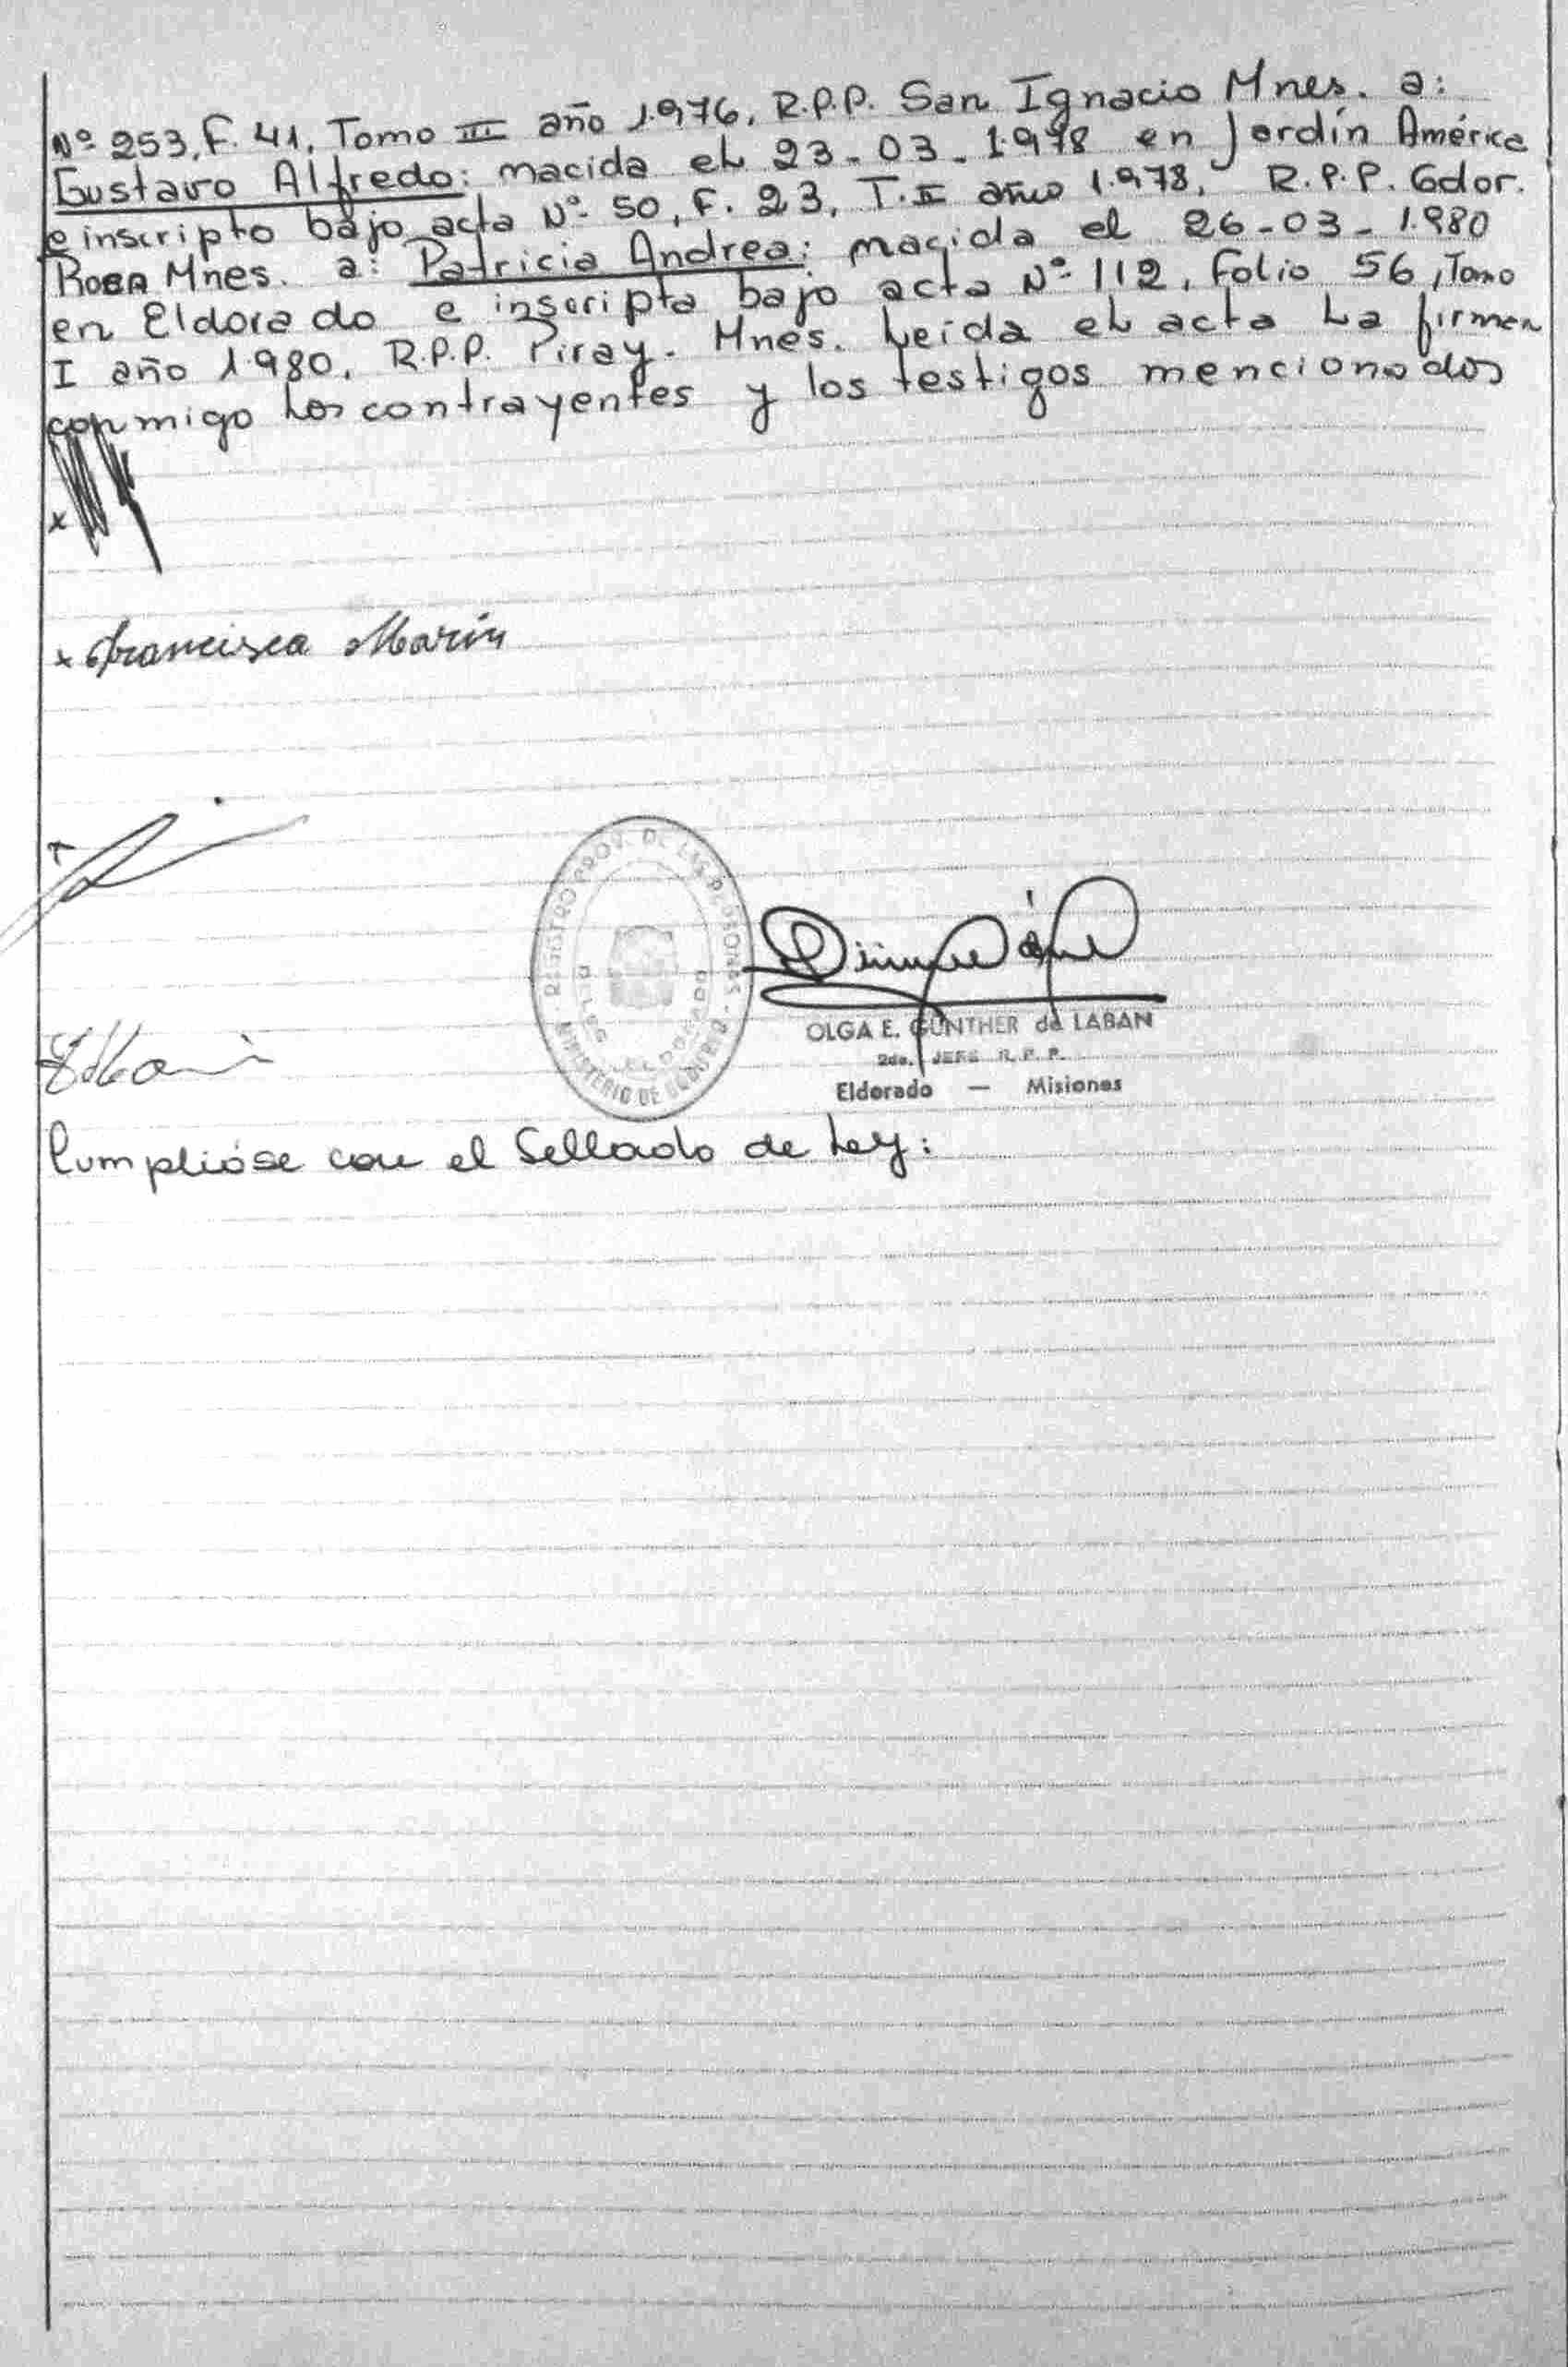 Nº 253, F. 41, Tomo III año 1.976, R.P.P. San Ignacio Mnes. a:
Gustavo Alfredo: nacida el 23-03-1.978 en Jardín América
e inscripto bajo acta Nº 50, F. 23, T. II año 1.978, R.P.P. Gdor.
Roca Mnes. a: Patricia Andrea: nacida el 26-03-1.980
en Eldorado e inscripta bajo acta Nº 112, Folio 56, Tomo
I año 1.980, R.P.P. Piray. Mnes. Leída el acta la firman
conmigo los contrayentes y los testigos mencionados
x
x Francisca Marin
REGISTRO PROV. DE LAS PERSONAS
ELDORADO
MINISTERIO DE GOBIERNO
OLGA E. GÜNTHER de LABAN
2do. JEFE R. P. P.
Eldorado — Misiones
Cumplióse con el Sellado de Ley: